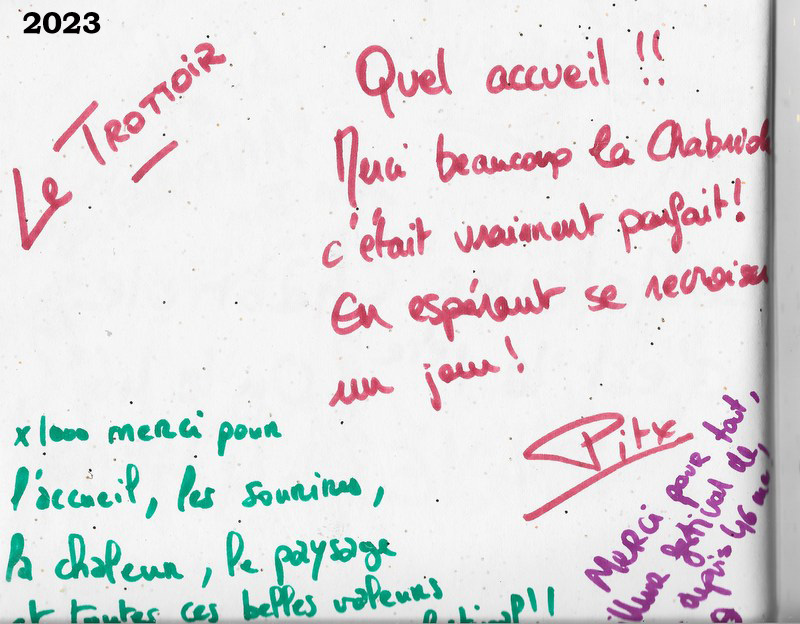 2023
Le TROTTOIR
Quel accueil !!
Merci beaucoup la Chabriole
c'était vraiment parfait !
En espérant se recroiser
un jour !
Pitx
x1000 merci pour
l'accueil, les sourires,
la chaleur, le paysage
et toutes ces belles valeurs
festival !!
Merci pour tout,
festival de
depuis 46 ans,